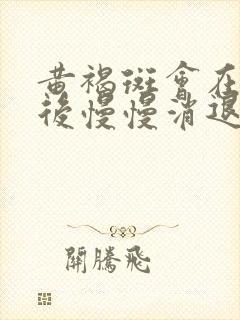 黄褐斑會在
後慢慢消退
開騰飛